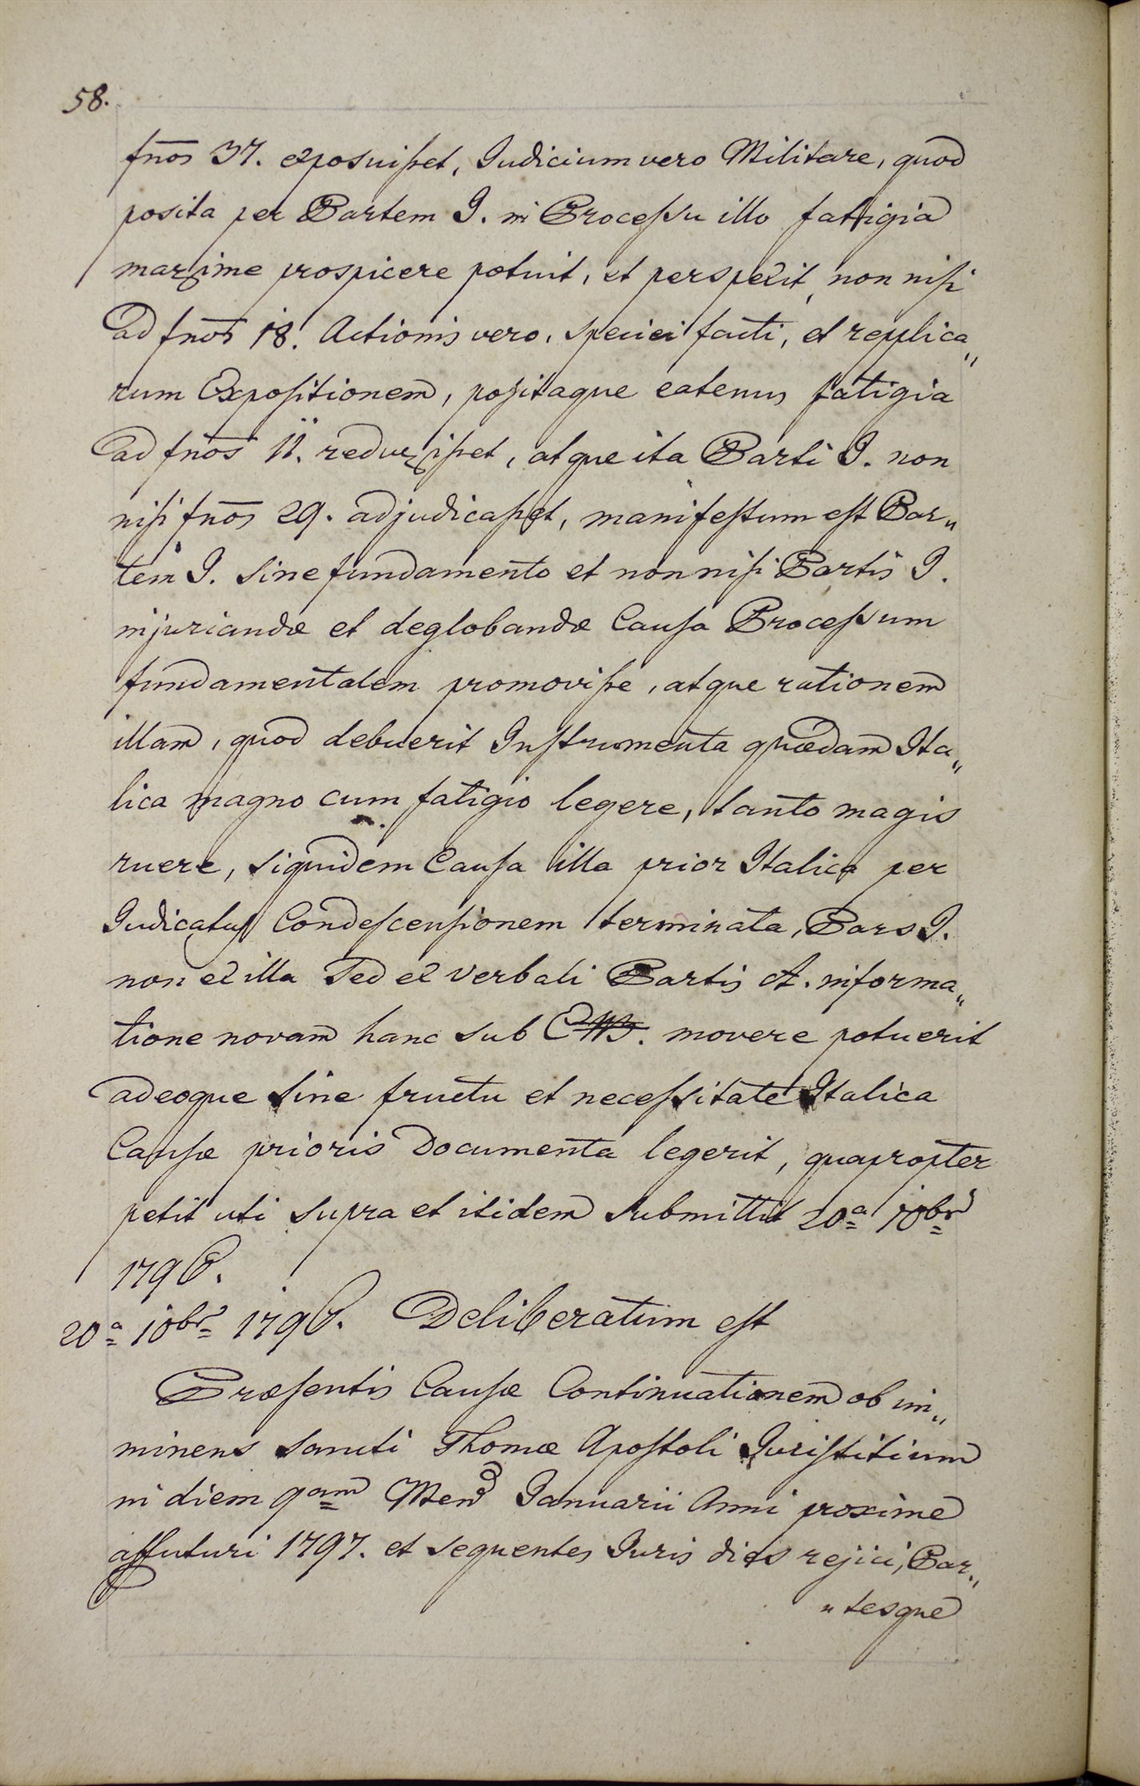 58.
fnos 37. exposuisset, Judicium vero Militare, quod
posita per Partem I. in Processu illo fatigia
maxime prospicere potuit, et perspexit, non nisi
ad fnos 18. Actionis vero, speciei facti, et replica„
rum Expositionem, positaque eatenus fatigia
ad fnos 11. reduxisset, atque ita Parti I. non
nisi fnos 29. adjudicasset, manifestum est Par„
tem I. sine fundamento et non nisi Partis I.
injuriandæ et deglobandæ Causa Processum
fundamentalem promovisse, atque rationem
illam, quod debuerit Instrumenta quædam Ita„
lica magno cum fatigio legere, tanto magis
ruere, siquidem Causa illa prior Italica per
Judicatus Condescensionem terminata, Pars I.
non ex illa sed ex verbali Partis A. informa„
tione novam hanc sub movere potuerit
adeoque sine fructu et necessitate Italica
Causæ prioris Documenta legerit, quapropter
petit uti supra et itidem submittit 20a 10bris
1796.
20a 10bris 1796. Deliberatum est
Præsentis Causæ Continuationem ob im„
minens sancti Thomæ Apostoli Juristitium
in diem 9am Mens Januarii Anni proxime
affuturi 1797. et sequentes Juris dies rejici, Par„
„tesque